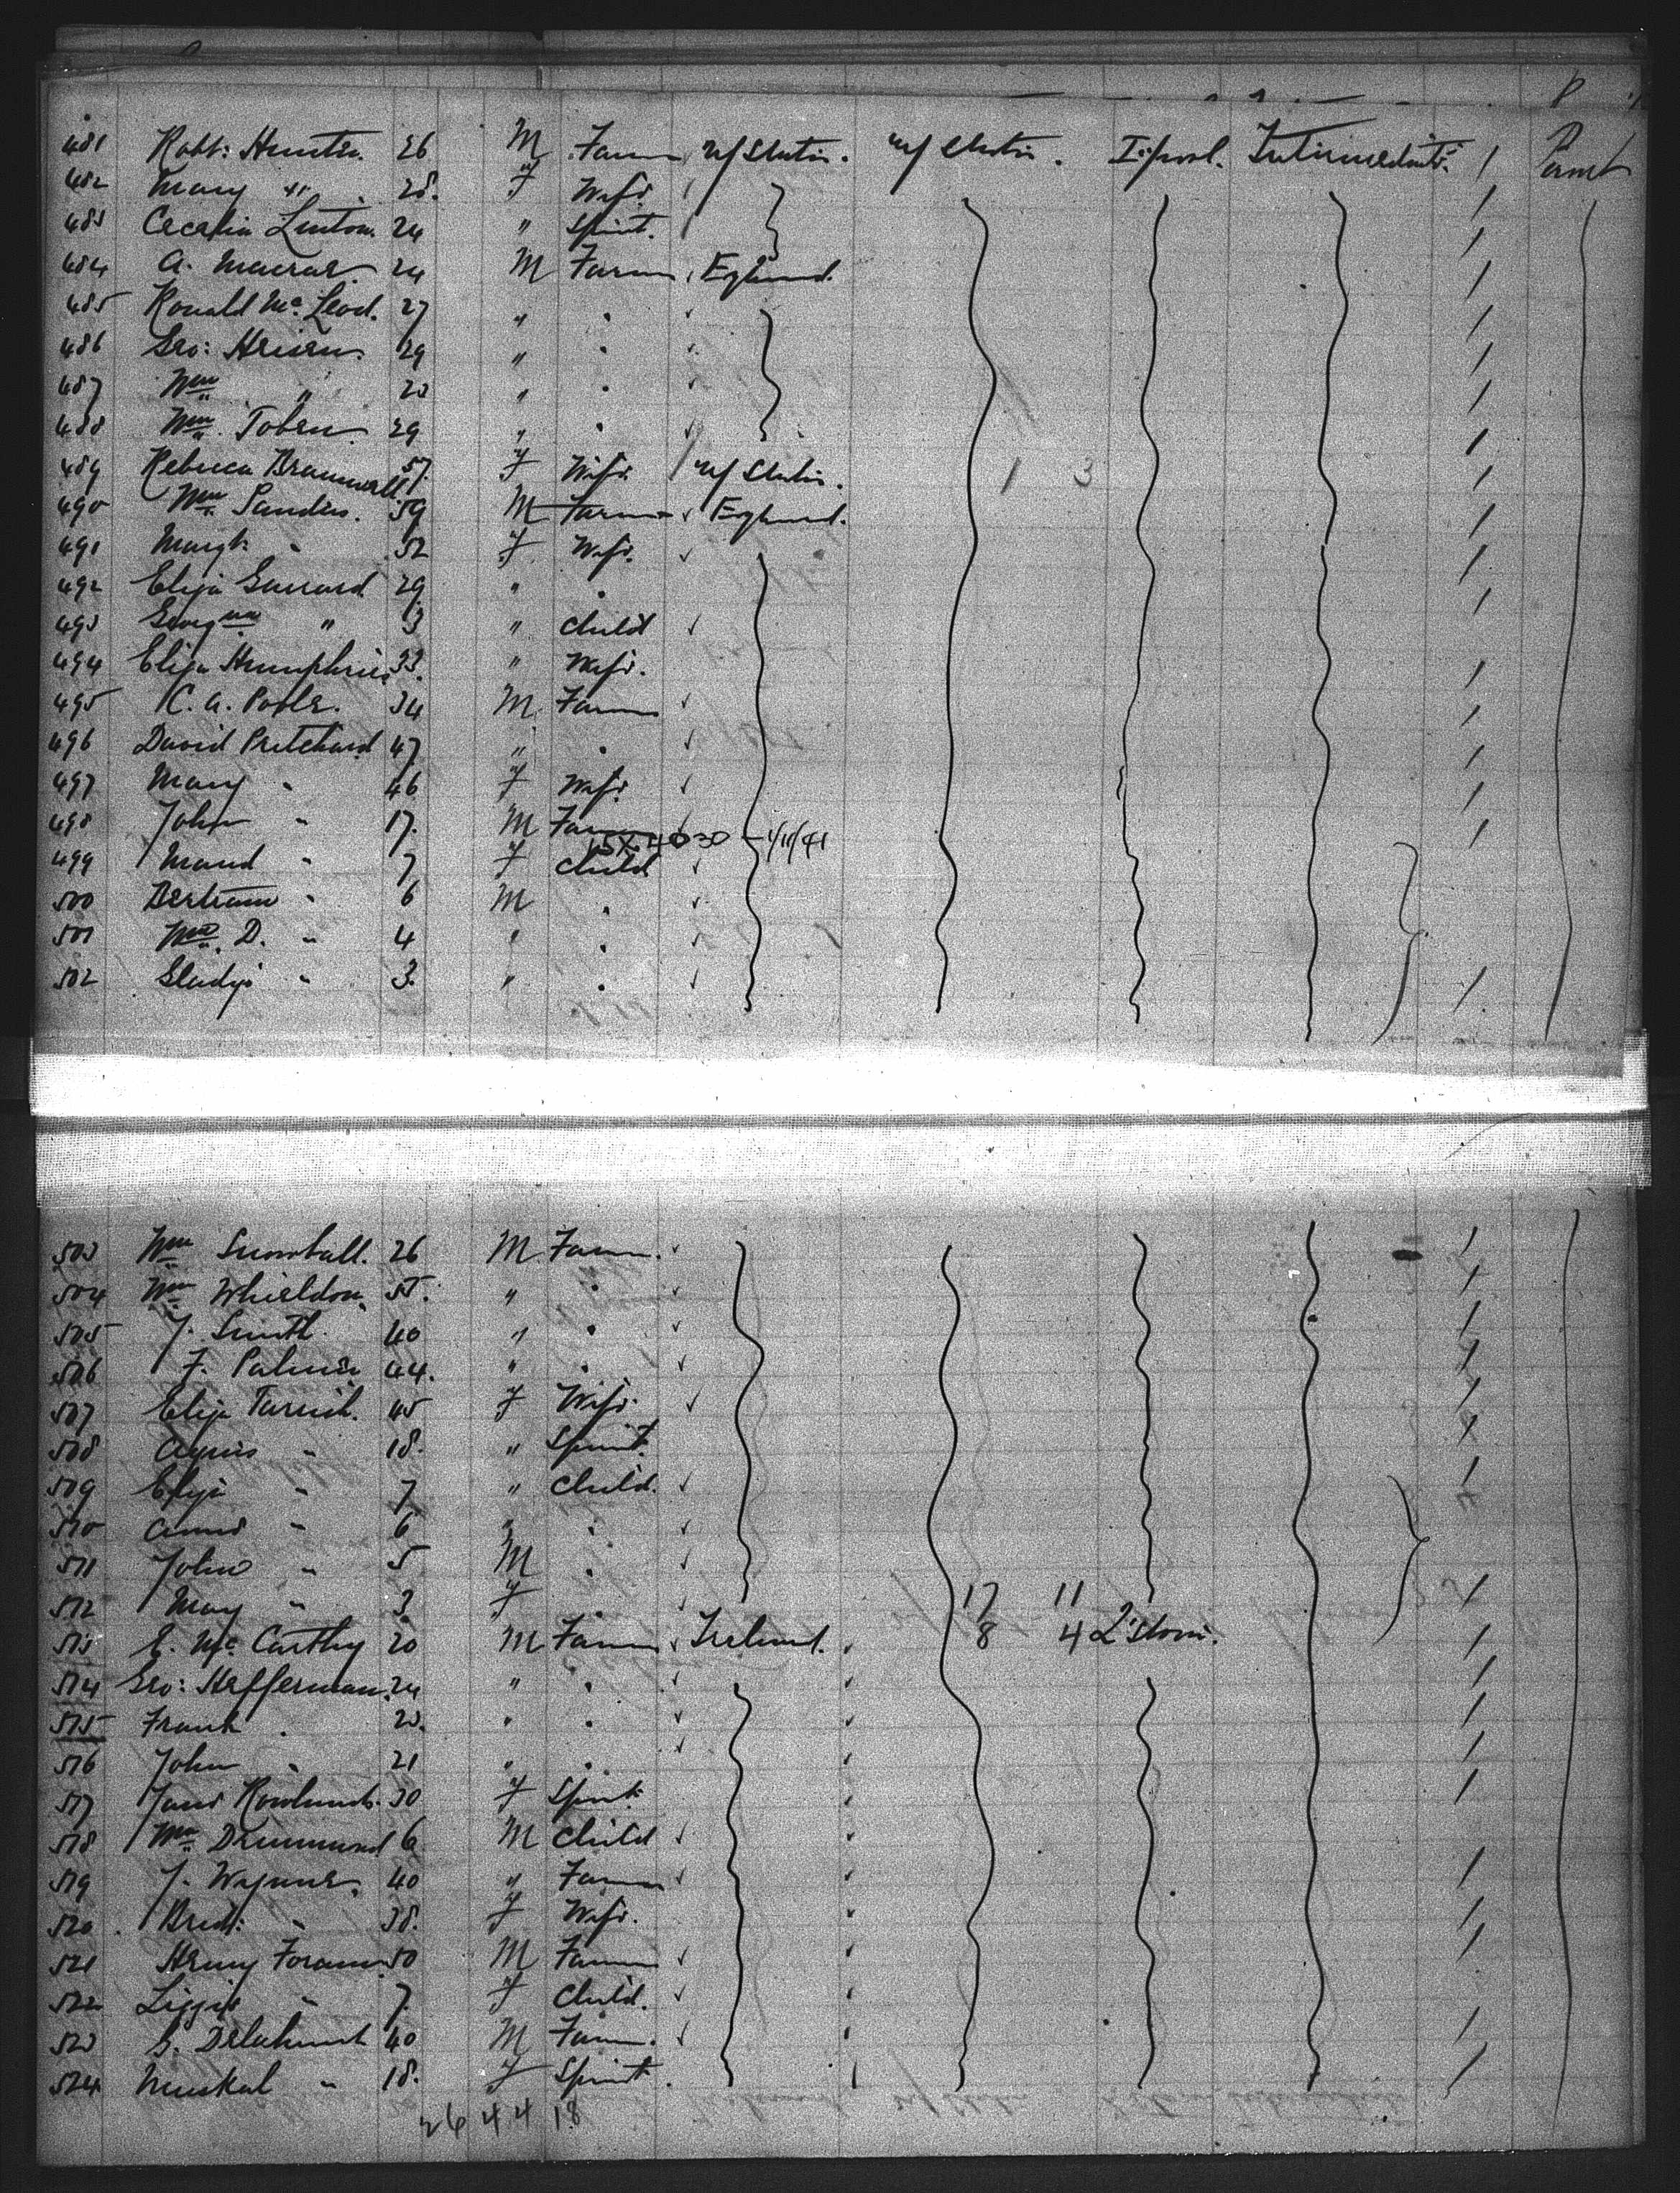 481 Robt: Hunter. 26 M Farm U/States. U/States. L'pool. Intermediate. / Permt
482 Mary " 28. F Wife. /
483 Linton. 24 " Spint. /
484 A. Macrae 24 M Farm England. /
485 Ronald McLeod. 27 " " /
486 Geo: 29 " " /
487 Wm " " " /
488 Wm Toben. 29 " " /
489 Rebecca 57. F Wife. U/States. 1 3 /
490 Wm Sanders. 59 M Farm England. /
491 Margt. " 52 F Wife. /
492 Eliza Garrard 29 " " /
493 " 3 " Child
494 Eliza Humphries 33. " Wife. /
495 C. A. Poole. 34 M. Farm /
496 David Pritchard 47 " " /
497 Mary " 46 F Wife. /
498 John " 17. M Farm /
15 X 4030 - 1/11/41
499 Maud " 7 F Child
500 Bertram " 6 M "
501 Wm. D. " 4 " "
502 Gladys " 3. " " /
503 Wm Snowball. 26 M. Farm. /
504 Wm Whieldon 55. " " /
505 J. Smith. 40 " " /
506 F. Palmer 44. " " /
507 Eliza 45 F Wife. /
508 Agnes " 18. " Spint. /
509 Eliza " 7 " Child. /
510 Annie " 6 " "
511 John " 5 M "
512 May " 3 F " 17 11 /
513 E. McCarthy 20 M Farm Ireland. 8 4 /
514 Geo: Heffernan. 24 " " /
515 Frank " " " /
516 John " 21 " " /
517 Jane Rowlands. 30 F Spint. /
518 Wm Drummond 6 M Child
519 J. Wynne. 40 " Farm /
520 " 38. F Wife. /
521 Henry 50 M Farm /
522 Lizzie " 7. F Child.
523 S. Delahunt 40 M Farm. /
524 " 18. F Spint. /
26 4 4 18